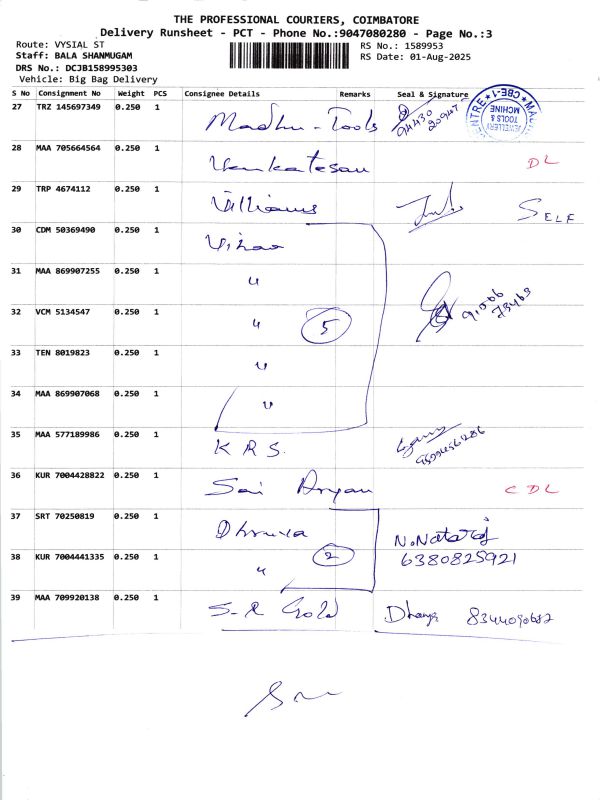 THE PROFESSIONAL COURIERS, COIMBATORE
Delivery Runsheet - PCT - Phone No.:9047080280 - Page No.:3
Route: VYSIAL ST RS No.: 1589953
Staff: BALA SHANMUGAM RS Date: 01-Aug-2025
DRS No.: DCJB158995303
Vehicle: Big Bag Delivery
S No Consignment No Weight PCS Consignee Details Remarks Seal & Signature
27 TRZ 145697349 0.250 1 Madhu-Tools 94430 20947 JEWELLERY TOOLS & MCHINE CBE-1
28 MAA 705664564 0.250 1 Venkatesan DL
29 TRP 4674112 0.250 1 Williams SELF
30 CDM 50369490 0.250 1 Vihao
31 MAA 869907255 0.250 1 "
32 VCM 5134547 0.250 1 " 5
33 TEN 8019823 0.250 1 "
34 MAA 869907068 0.250 1 "
35 MAA 577189986 0.250 1 KRS.
36 KUR 7004428822 0.250 1 Sai Aryan CDL
37 SRT 70250819 0.250 1 Dhruva N.Nataraj
38 KUR 7004441335 0.250 1 " 2 6380825921
39 MAA 709920138 0.250 1 S-R Gold Dhanya